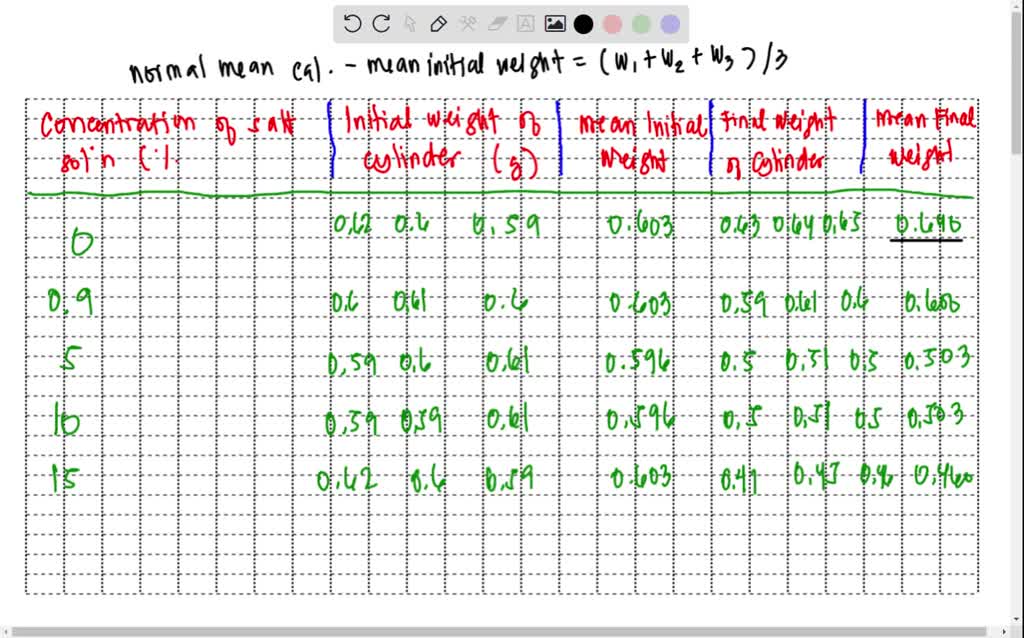 normal mean cal. - mean initial weight = (W1 + W2 + W3) / 3
Concentration of salt Initial weight of mean Initial Final Weight Mean Final
sol'n (%. cylinder (g) Weight of Cylinder weight
0 0.62 0.6 0.59 0.603 0.63 0.64 0.65 0.640
0.9 0.6 0.61 0.6 0.603 0.59 0.61 0.6 0.600
5 0.59 0.6 0.61 0.596 0.5 0.51 0.5 0.503
10 0.59 0.59 0.61 0.596 0.5 0.51 0.5 0.503
15 0.62 0.6 0.59 0.603 0.47 0.45 0.46 0.460